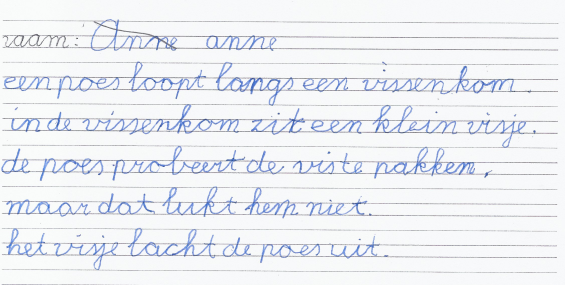 naam: Anne anne
een poes loopt langs een vissenkom.
in de vissenkom zit een klein visje.
de poes probeert de vis te pakken,
maar dat lukt hem niet.
het visje lacht de poes uit.